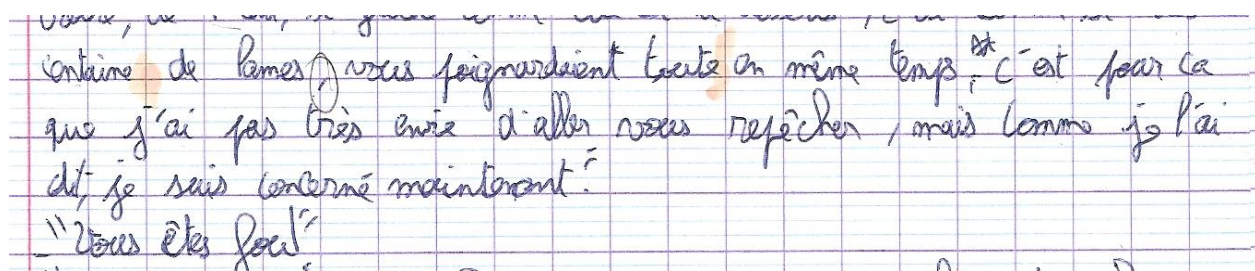 centaine de lames, vous poignardaient toute en même temps. ** C'est pour ca
que j'ai pas très envie d'aller vous repêcher, mais comme je l'ai
dit, je suis concerné maintenant."
_"Vous êtes fou!"